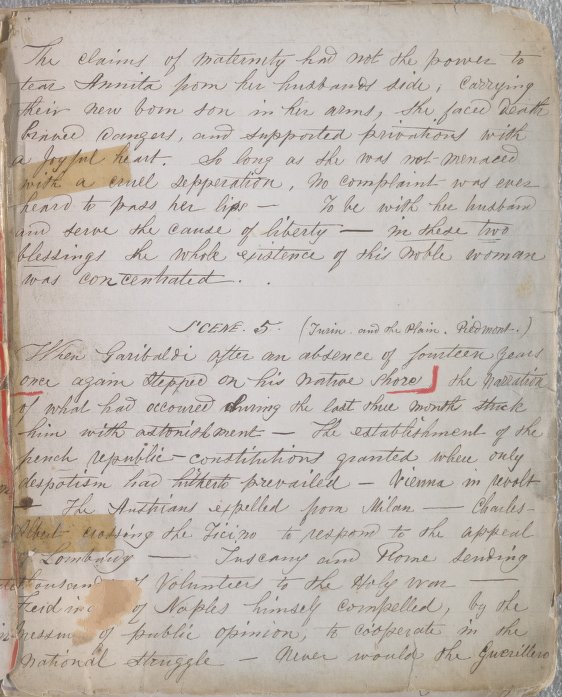 The claims of maternity had not the power to
tear Annita from her husbands side, carrying
their new born son in her arms, she faced death
braved dangers, and supported privations with
a joyful heart. So long as she was not menaced
with a cruel sepperation, no complaint was ever
heard to pass her lips — To be with her husband
and serve the cause of liberty — in these two
blessings the whole existence of this noble woman
was concentrated.
SCENE. 5. (Turin and the Plain. Piedmont.)
When Garibaldi after an absence of fourteen years
once again stepped on his native shore the narration
of what had occured during the last three month struck
him with astonishment — The establishment of the
french republic — constitutions granted when only
despotism had hitherto prevailed — Vienna in revolt
— The Austrians expelled from Milan — Charles-
Albert crossing the Ticino to respond to the appeal
Lombardy — Tuscany and Rome sending
thousand of Volunteers to the Holy War —
Ferdin of Naples himself compelled, by the
pressure of public opinion, to cooperate in the
national struggle — Never would the Guerillero